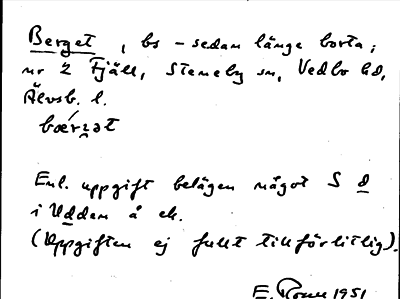 Berget, bs – sedan länge borta;
nr 2 Fjäll, Steneby sn, Vedbo hd,
Älvsb. l.
bæ´rʒət
Enl. uppgift belägen något S d
i Uddan å ek.
(Uppgiften ej fullt tillförlitlig).
E. 1951